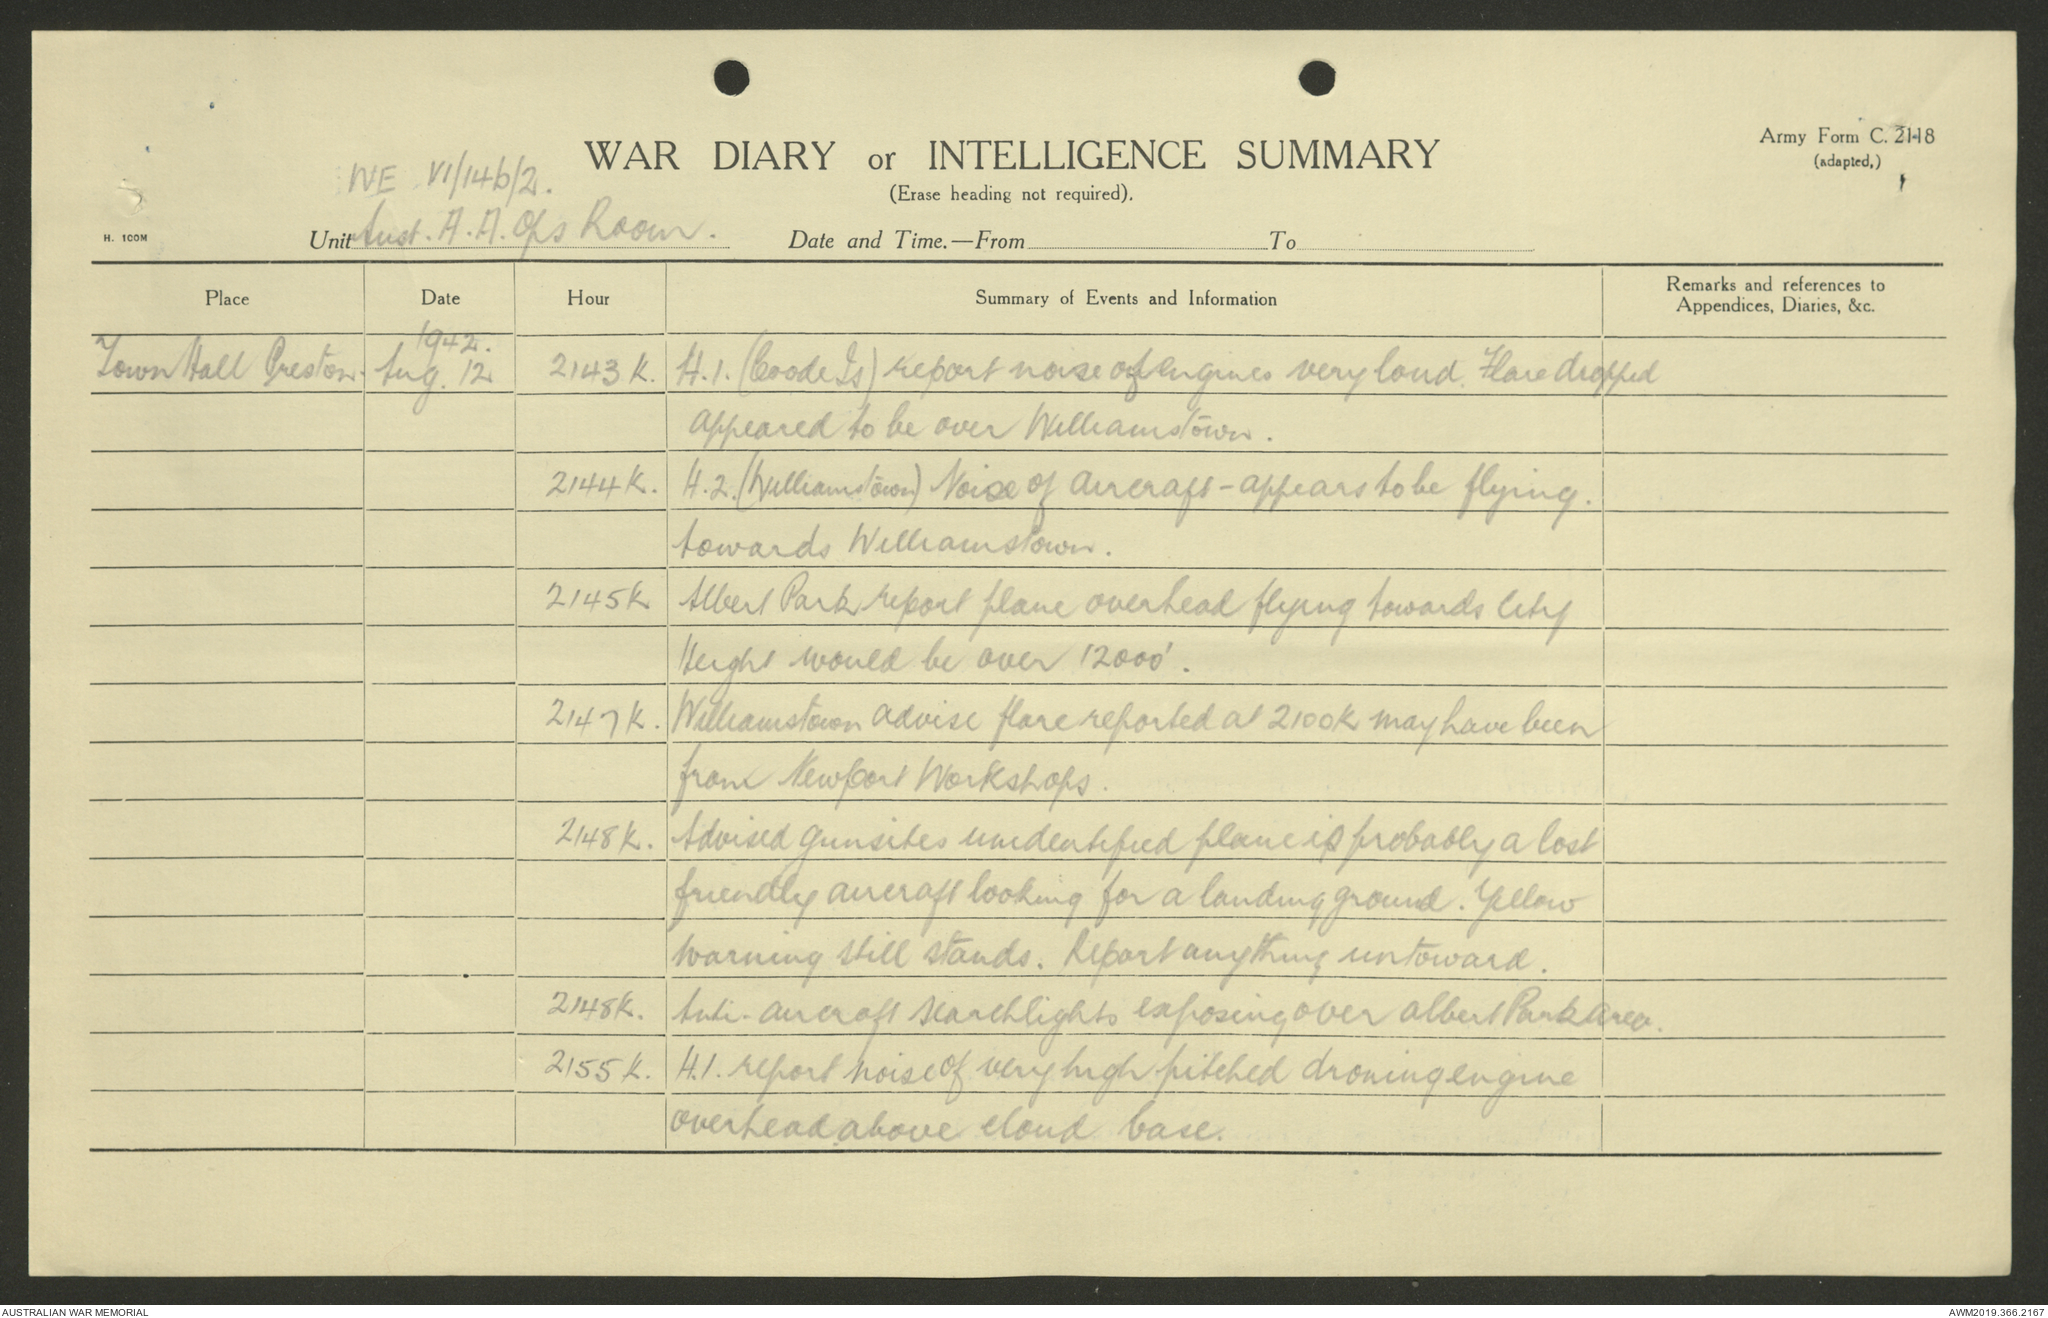 WAR DIARY or INTELLIGENCE SUMMARY
Army Form C. 2118
(adapted.)
(Erase heading not required).
WE VI/146/2.
H. 100M
Unit Aust. A.A. Ops Room.
Date and Time.—From To
Place Date Hour Summary of Events and Information Remarks and references to Appendices, Diaries, &c.
1942.
Town Hall Preston. Aug. 12 2143 K. H.1. (Coode Is) report noise of engines very loud. Flare dropped
appeared to be over Williamstown.
2144 K. H.2. (Williamstown) Noise of aircraft - appears to be flying.
towards Williamstown.
2145K Albert Park report plane overhead flying towards City
Height would be over 12000'.
2147 K. Williamstown advise flare reported at 2100K may have been
from Newport Workshops.
2148 K. Advised gunsites unidentified plane is probably a lost
friendly aircraft looking for a landing ground. Yellow
warning still stands. Report anything untoward.
2148K. Anti-aircraft searchlights exposing over Albert Park area.
2155 K. H.1. report noise of very high pitched droning engine
overhead above cloud base.
AUSTRALIAN WAR MEMORIAL
AWM2019.366.2167